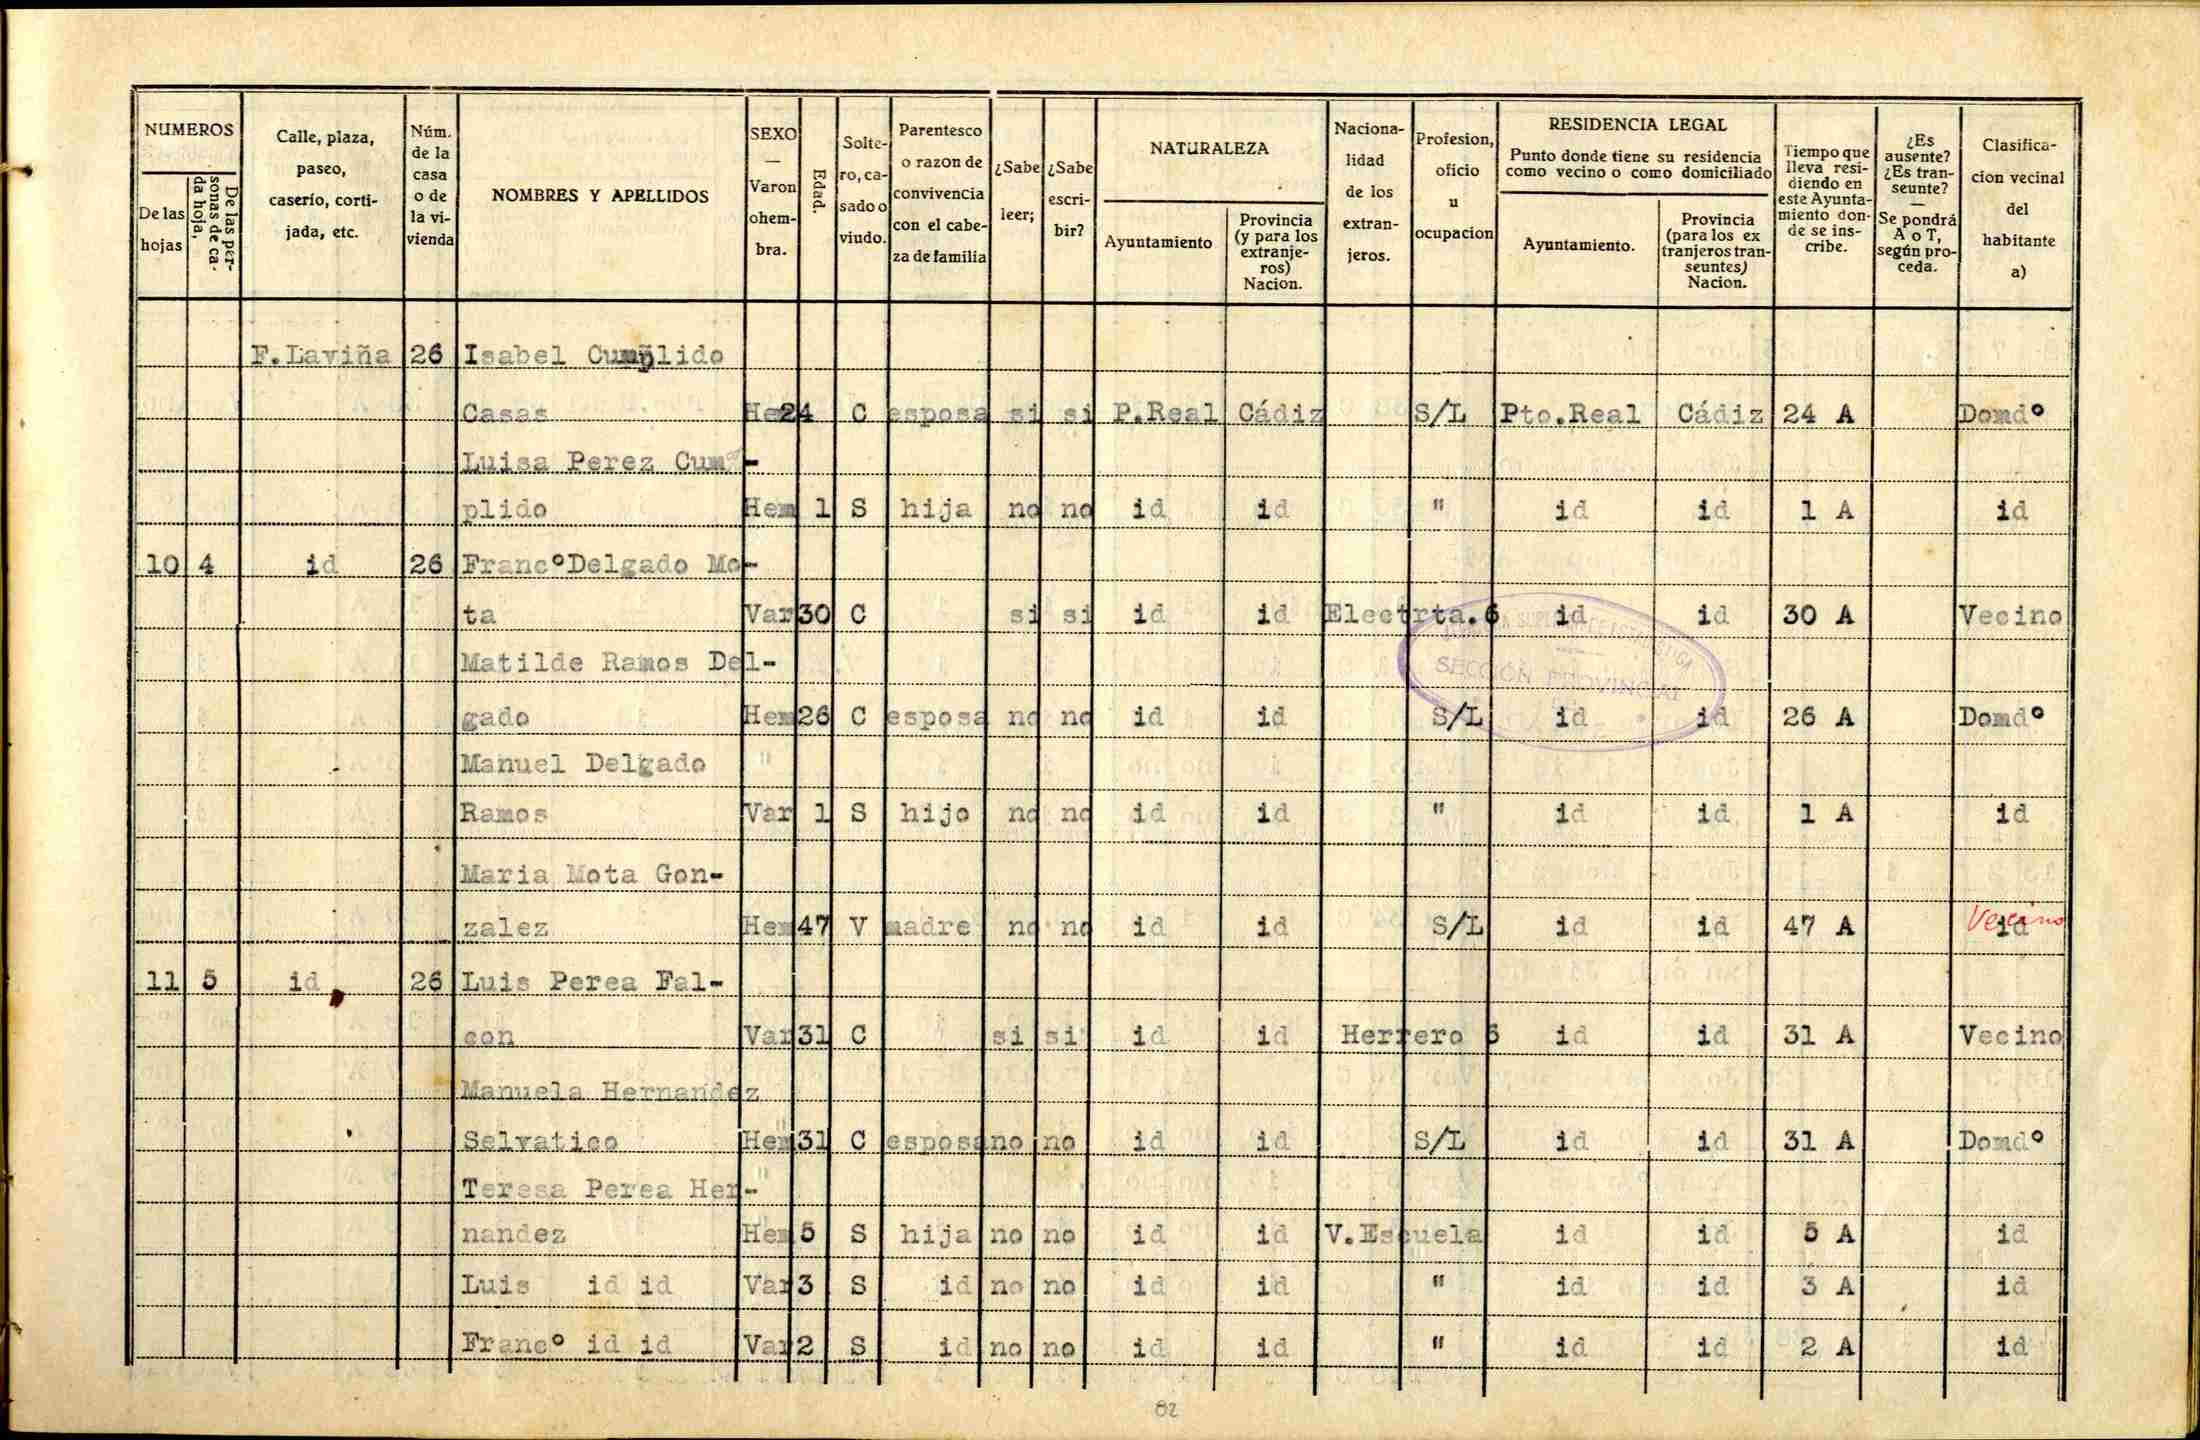 NUMEROS
De las hojas
De las personas de cada hoja,
Calle, plaza, paseo, caserío, cortijada, etc.
Núm. de la casa o de la vivienda
NOMBRES Y APELLIDOS
SEXO — Varon ohembra.
Edad.
Soltero, casado o viudo.
Parentesco o razon de convivencia con el cabeza de familia
¿Sabe leer;
¿Sabe escribir?
NATURALEZA
Ayuntamiento
Provincia (y para los extranjeros) Nacion.
Nacionalidad de los extranjeros.
Profesion, oficio u ocupacion
RESIDENCIA LEGAL
Punto donde tiene su residencia como vecino o como domiciliado
Ayuntamiento.
Provincia (para los extranjeros transeuntes) Nacion.
Tiempo que lleva residiendo en este Ayuntamiento donde se inscribe.
¿Es ausente? ¿Es transeunte? — Se pondrá A o T, según proceda.
Clasificacion vecinal del habitante a)
F.Laviña 26 Isabel Cumplido
Casas Hem 24 C esposa si si P.Real Cádiz S/L Pto.Real Cádiz 24 A Domdº
Luisa Perez Cum-
plido Hem 1 S hija no no id id " id id 1 A id
10 4 id 26 FrancºDelgado Mo-
ta Var 30 C si si id id Electrta. 6 id id 30 A Vecino
Matilde Ramos Del-
gado Hem 26 C esposa no no id id S/L id id 26 A Domdº
Manuel Delgado "
Ramos Var 1 S hijo no no id id " id id 1 A id
Maria Mota Gon-
zalez Hem 47 V madre no no id id S/L id id 47 A id Vecino
11 5 id 26 Luis Perea Fal-
con Var 31 C si si id id Herrero 6 id id 31 A Vecino
Manuela Hernandez
Selvatico Hem 31 C esposa no no id id S/L id id 31 A Domdº
Teresa Perea Her- "
nandez Hem 5 S hija no no id id V.Escuela id id 5 A id
Luis id id Var 3 S id no no id id " id id 3 A id
Francº id id Var 2 S id no no id id " id id 2 A id
SECCIÓN PROVINCIAL
82